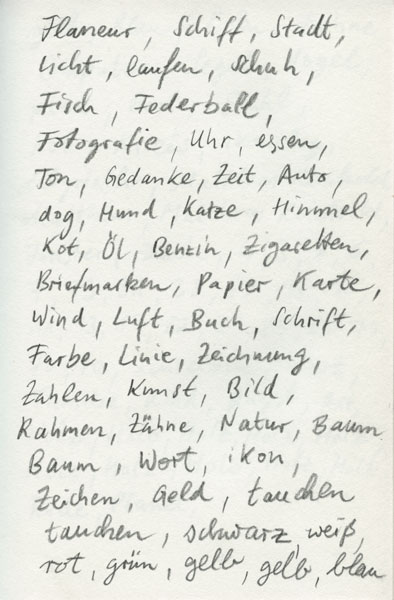 Flaneur, Schiff, Stadt,
Licht, laufen, Schuh,
Fisch, Federball,
Fotografie, Uhr, essen,
Ton, Gedanke, Zeit, Auto,
dog, Hund, Katze, Himmel,
Kot, Öl, Benzin, Zigaretten,
Briefmarken, Papier, Karte,
Wind, Luft, Buch, Schrift,
Farbe, Linie, Zeichnung,
Zahlen, Kunst, Bild,
Rahmen, Zähne, Natur, Baum
Baum, Wort, ikon,
Zeichen, Geld, tauchen
tauchen, schwarz, weiß,
rot, grün, gelb, gelb, blau